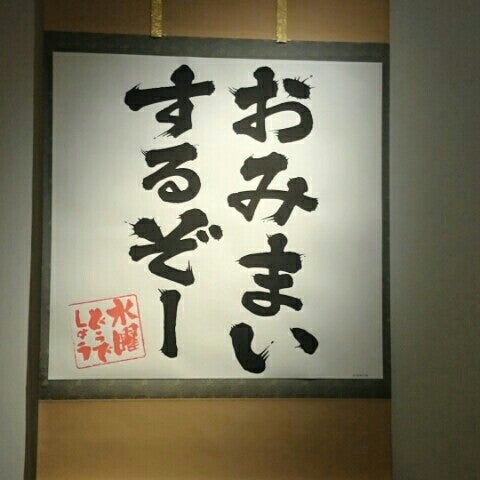 おみまい
するぞー
水曜
どうで
しょう